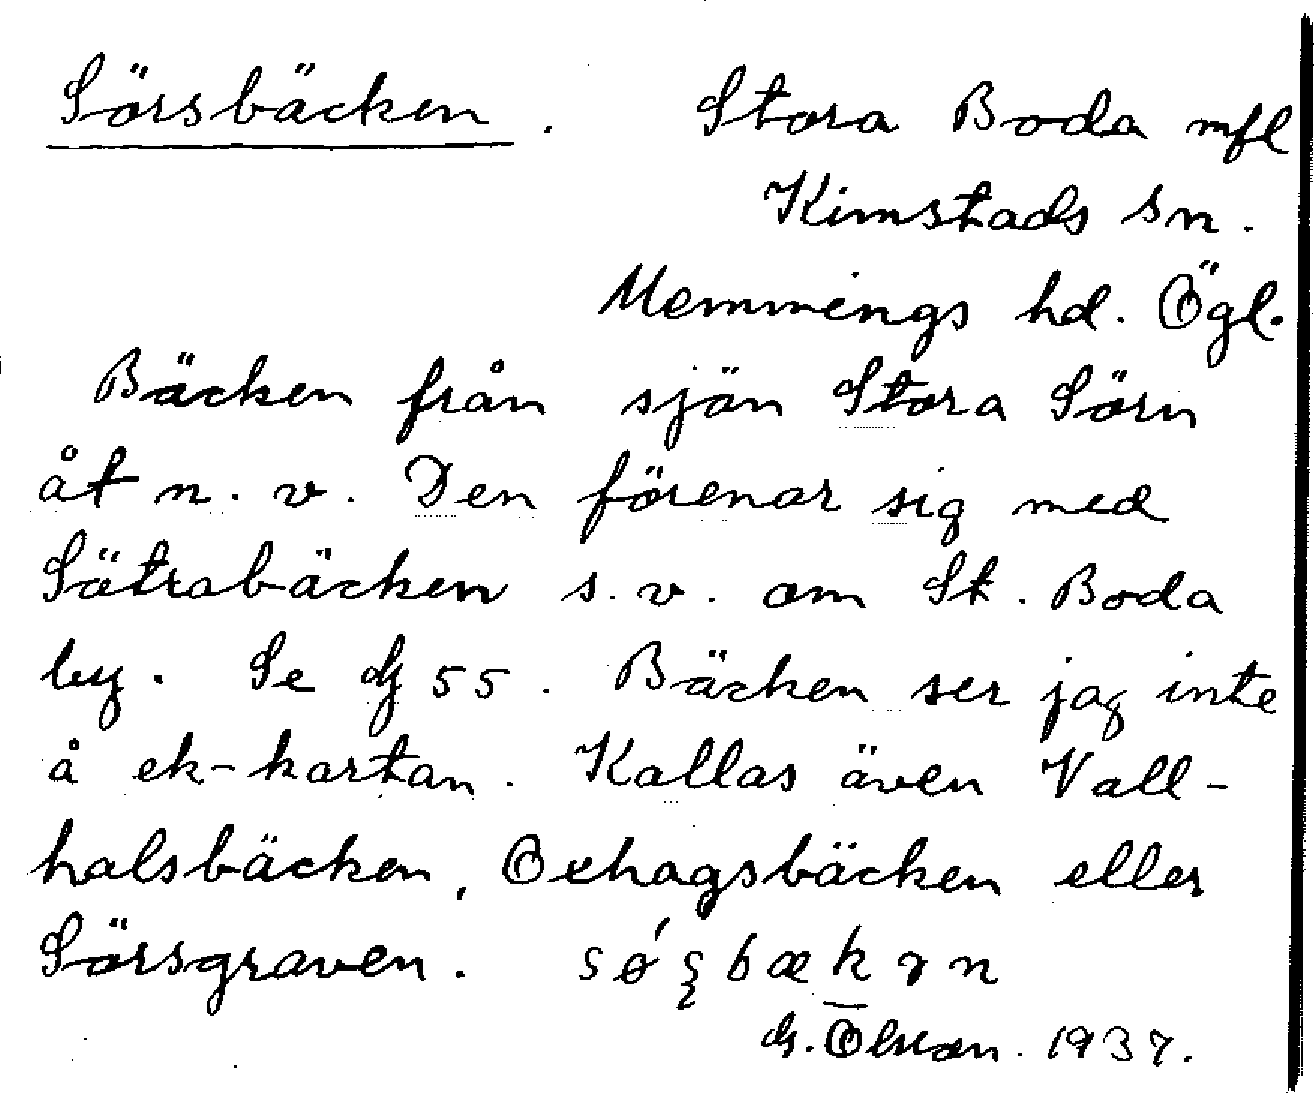 Sörsbäcken. Stora Boda mfl
Kimstads sn.
Memmings hd. Ögl.
Bäcken från sjön Stora Sörn
åt n. v. Den förenar sig med
Sätrabäcken s. v. om St. Boda
by. Se 55. Bäcken ser jag inte
å ek-kartan. Kallas även Vall-
halsbäcken, Oxhagsbäcken eller
Sörsgraven.
Olson. 1937.